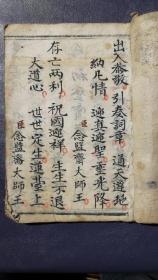 出入齋 引奏詞章 通天達地
納凡情 迎真迓聖 靈光降
臣念監齋大師王
存亡兩利 祝國迎祥 生生不退
大道心 世世定生蓮臺上
臣念監齋大師王